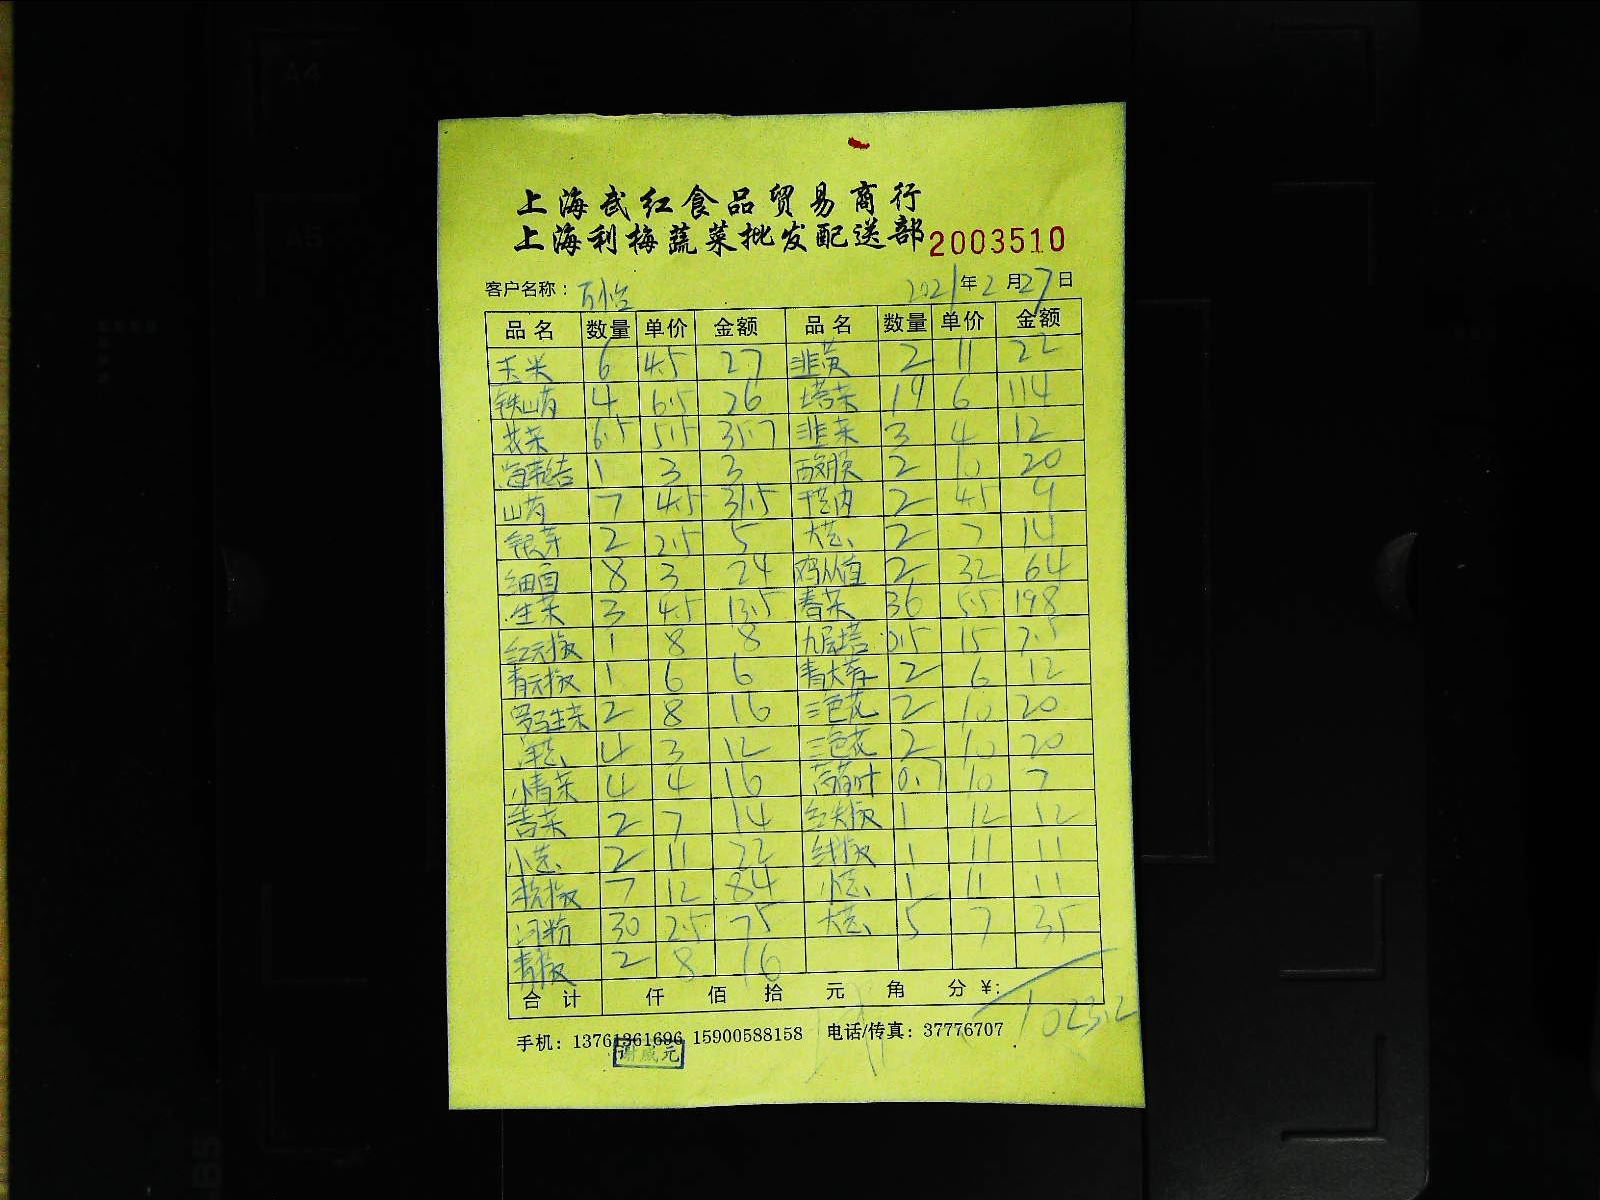 上海武红食品贸易商行
上海利梅蔬菜批发配送部 2003510
客户名称： 万怡 2021年2月27日
品名 数量 单价 金额 品名 数量 单价 金额
玉米 6 4.5 27 韭黄 2 11 22
铁山药 4 6.5 26 塔菜 19 6 114
花菜 6.5 5.5 35.7 韭菜 3 4 12
海带结 1 3 3 2 10 20
山药 7 4.5 31.5 2 4.5 9
银芽 2 2.5 5 大葱 2 7 14
8 3 24 2 32 64
生菜 3 4.5 13.5 春菜 36 5.5 198
红元椒 1 8 8 九层塔 0.5 15 7.5
青元椒 1 6 6 青大蒜 2 6 12
罗马生菜 2 8 16 三色花 2 10 20
洋葱 4 3 12 三色花 2 10 20
小青菜 4 4 16 0.7 10 7
2 7 14 红尖椒 1 12 12
小葱 2 11 22 线椒 1 11 11
杭椒 7 12 84 小葱 1 11 11
河粉 30 2.5 75 大葱 5 7 35
青椒 2 8 16
合计 仟 佰 拾 元 角 分 ¥: 1023.2
手机：13761361696 15900588158 电话/传真：37776707
谢威元